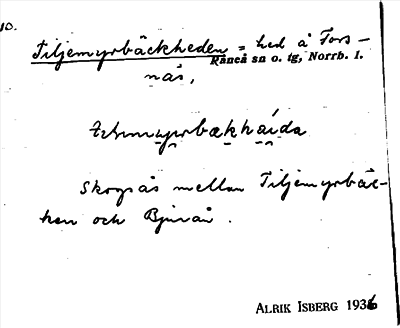 10.
Tiljemyrbäckheden = hed å Fors-
Råneå sn o. tg, Norrb. l.
näs,
Skogsås mellan Tiljemyrbäc-
ken och Bjurån.
ALRIK ISBERG 1936